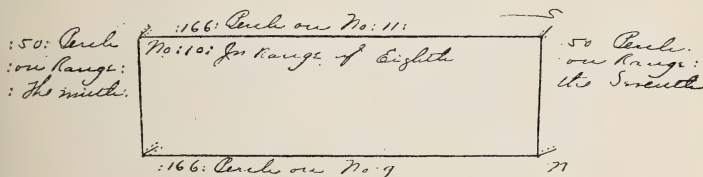 :166: Perch on No: 11:
S
:50: Perch
:on Range:
: The ninth:
No: 10: In Range of Eighth
50 Perch.
on Range:
the Seventh
:166: Perch on No. 9
N